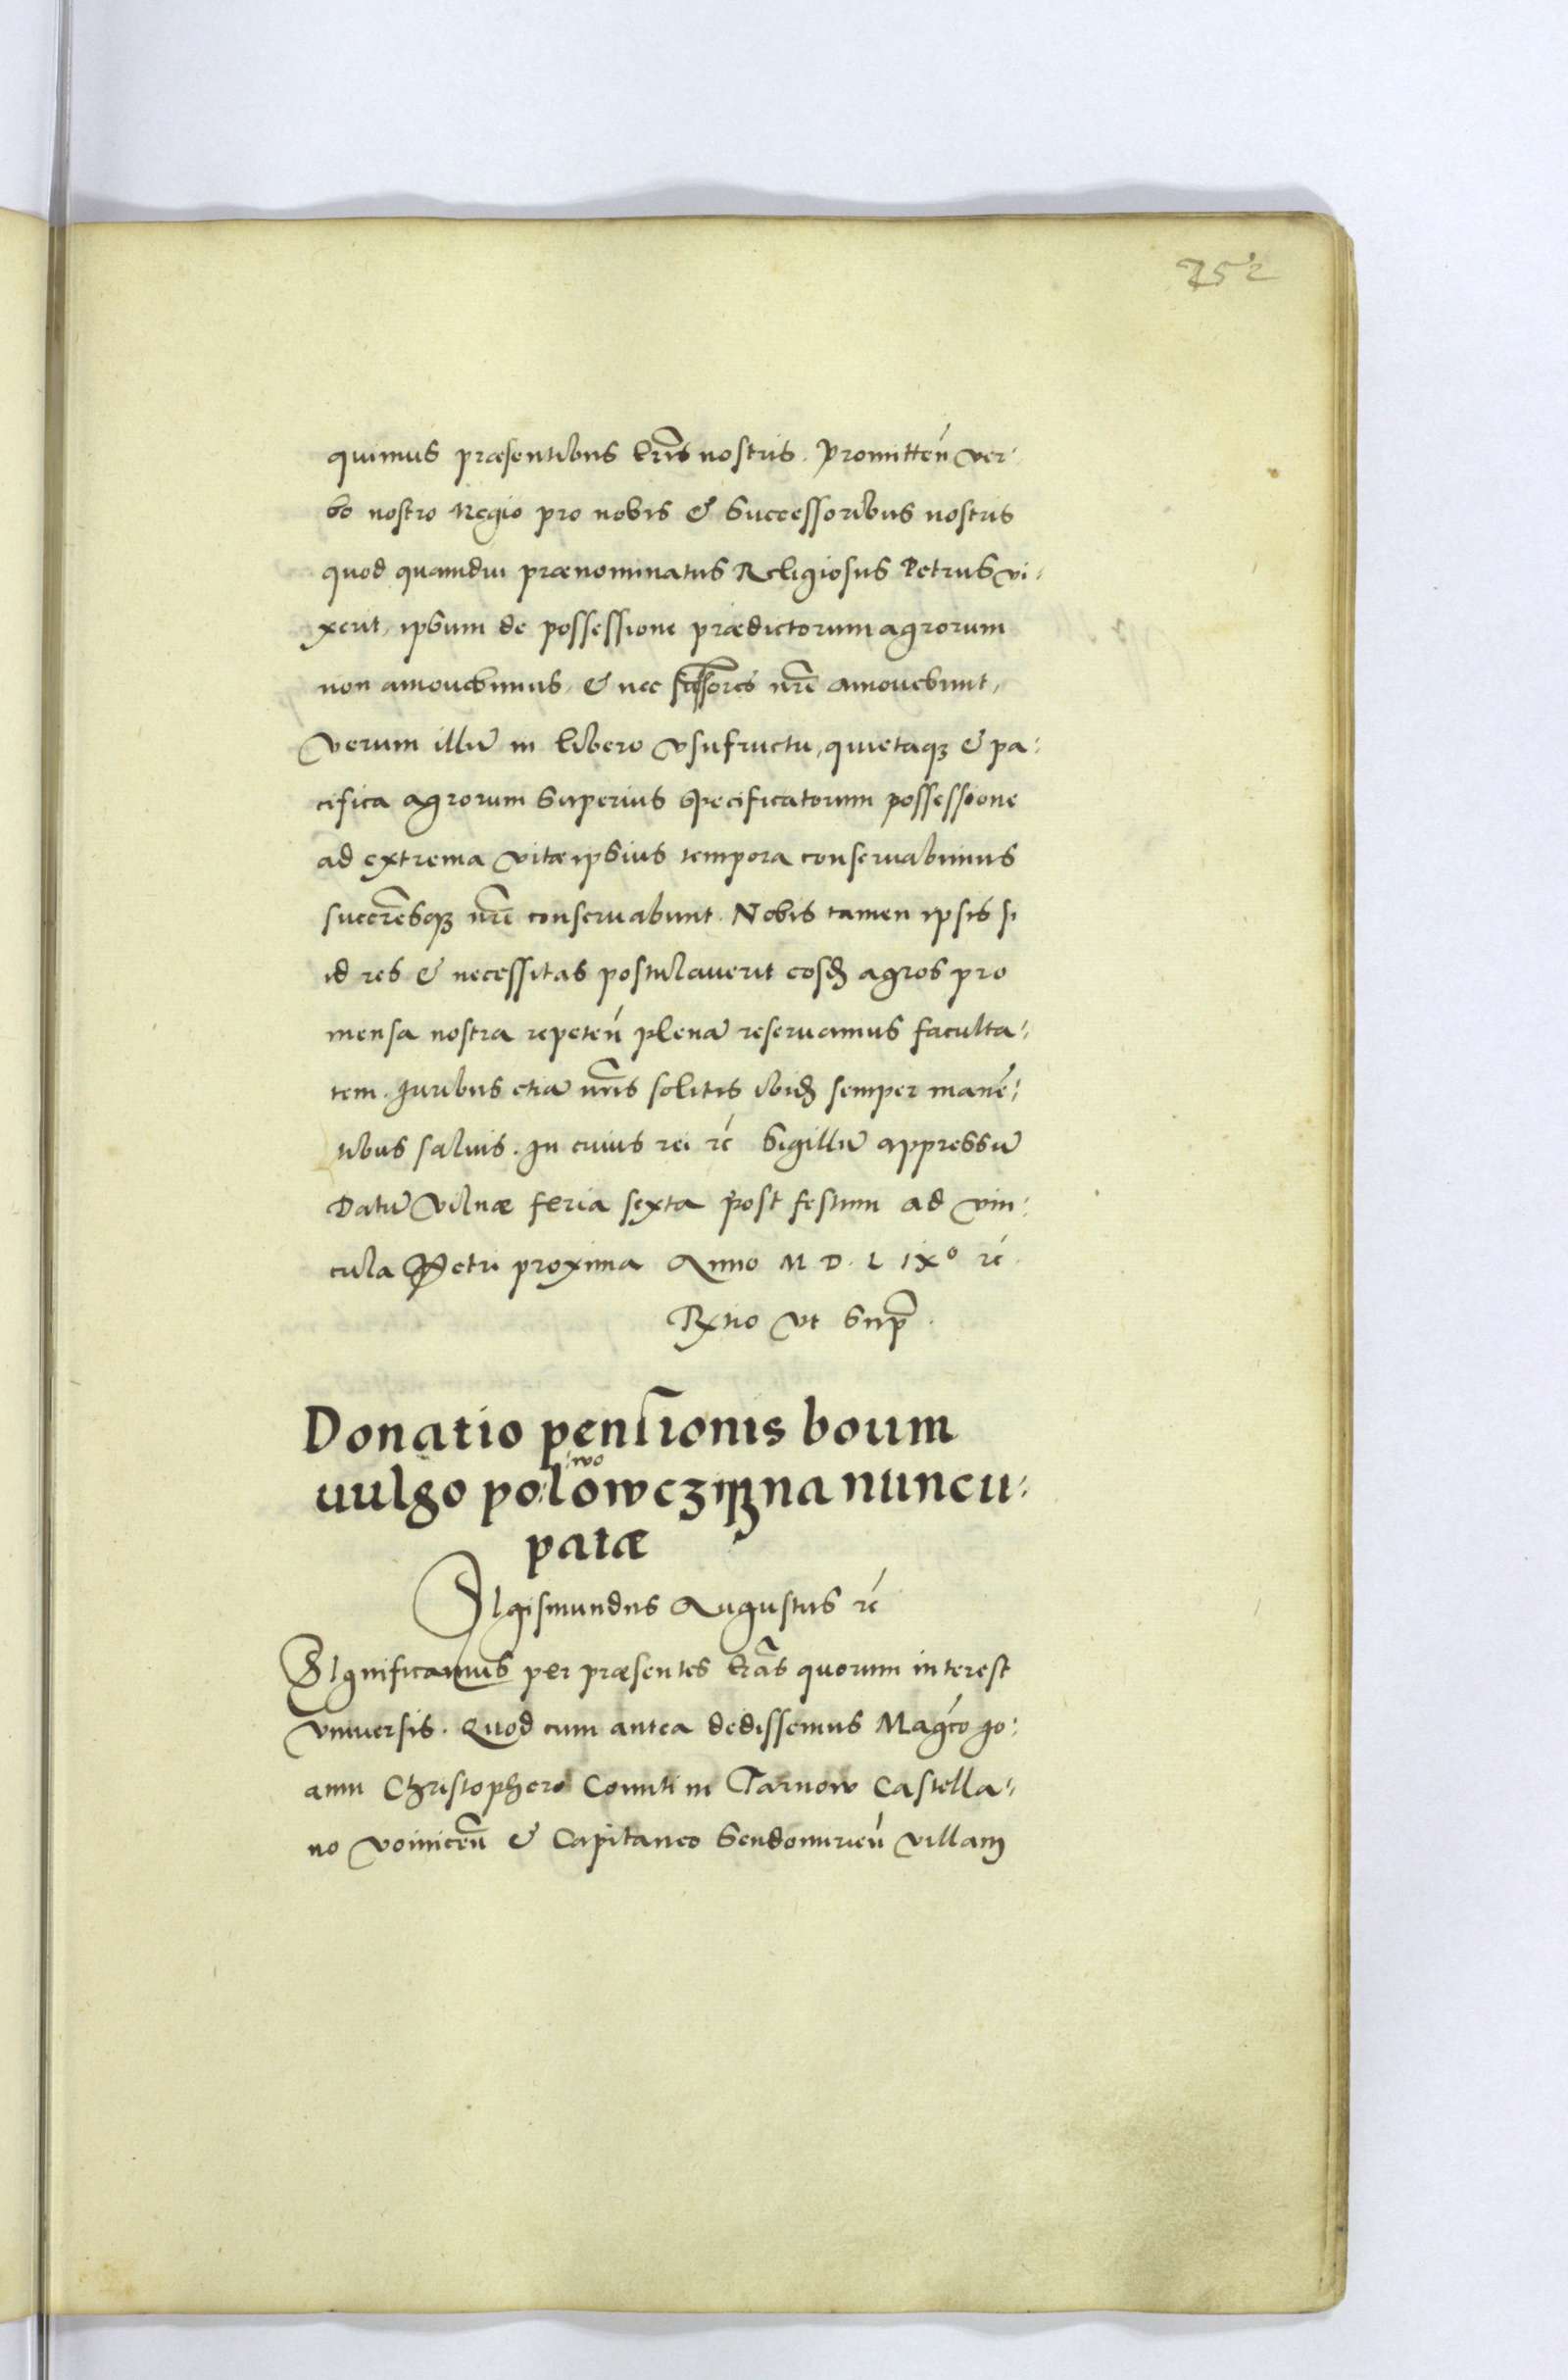 252
quimus præsentibus lr̃is nostris. Promitteń ver
bo nostro Regio pro nobis & Successoribus nostris
quod quamdiu prænominatus Religiosus Petrus vi:
xerit, ipsum de possessione prædictorum agrorum
non amovebimus, & nec sũssores nr̃i amovebunt,
Verum illũ in libero vsufructu, quietaqʒ & pa:
cifica agrorum superius specificatorum possessione
ad extrema vitæ ipsius tempora conservabimus
succr̃esqʒ nr̃i conservabunt. Nobis tamen ipsis si
id res & necessitas postulaverit eosđ agros pro
mensa nostra repeteń plenã reservamus faculta:
tem. Juribus etiã nr̃is solitis ibiđ semper manẽ:
tibus salvis. In cuius rei rć Sigillũ appressũ
Datũ Vilnæ feria sexta post festum ad vin:
cula Petri proxima Anno M D. L IXº rć.
Rxtio vt supr̃.
Donatio pensionis boum
uulgo po:lowcziʒna nuncu:
:wo
patæ
SIgismundus Augustus rć
SIgnificamus per præsentes lr̃as quorum interest
vniversis. Quod cum antea dedissemus Magco Jo:
anni Christophero Comiti in Tarnow Castella:
no Voiniceñ & Capitaneo Sendomirień villam